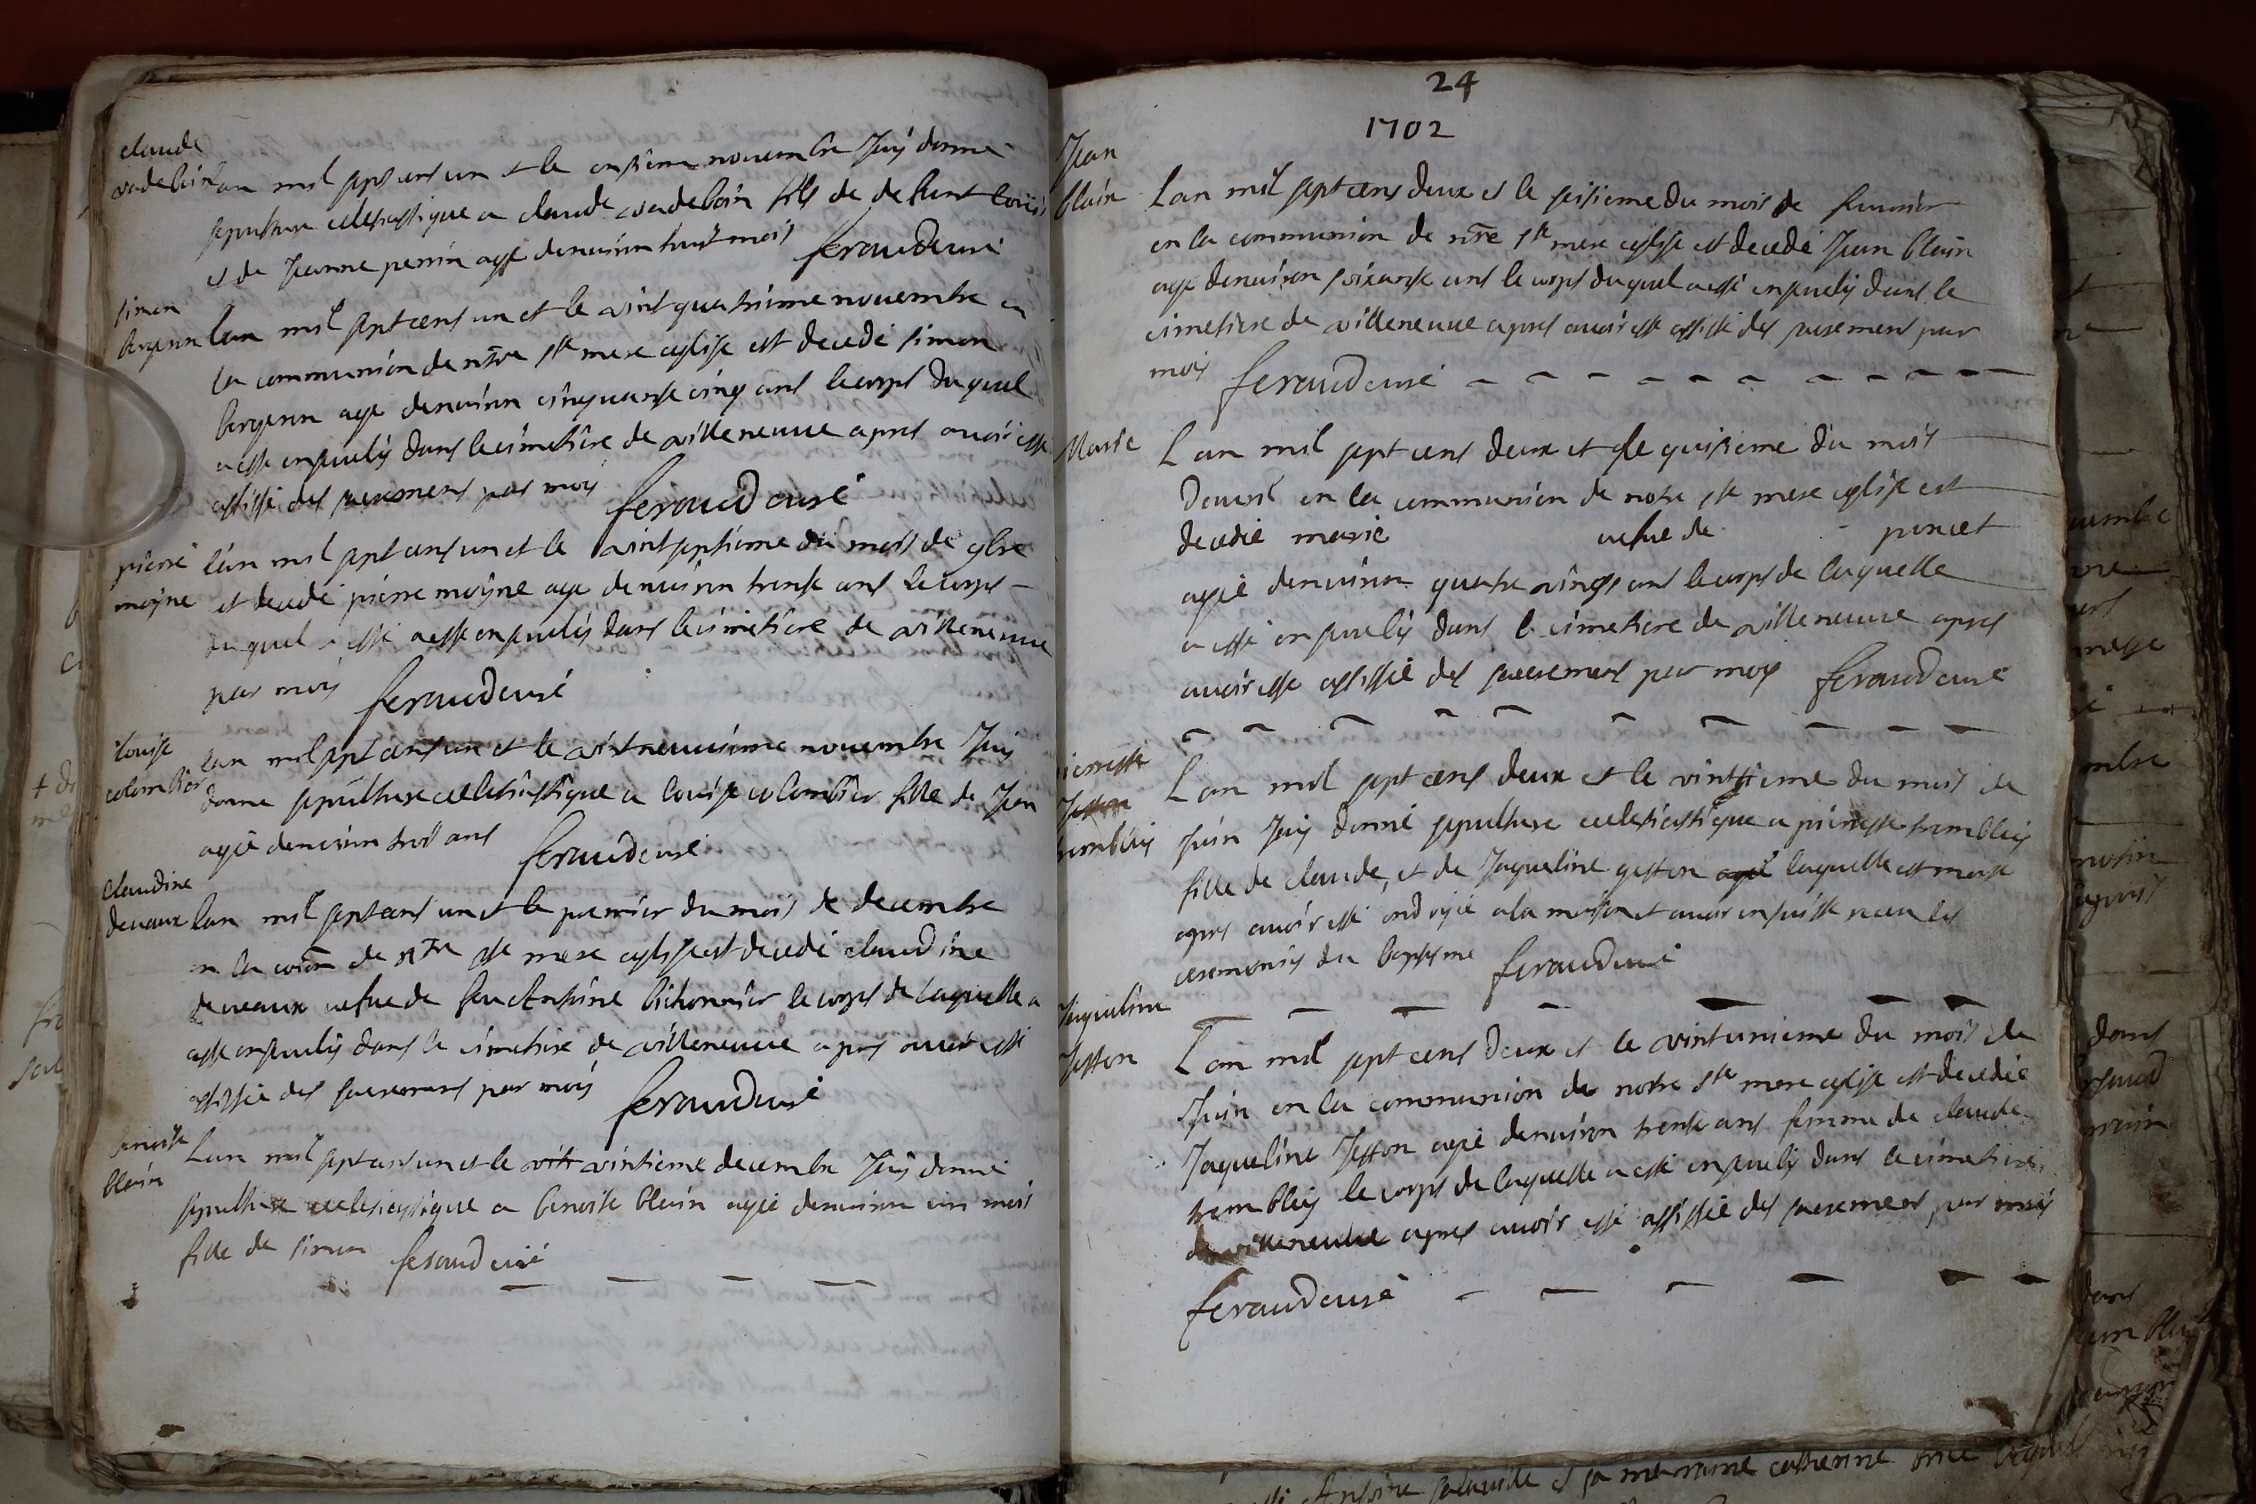 claude
vadeboin
lan mil sept cens un et le onsieme novembre Jay donné
sepulture eclesiastique a claude vadeboin fils de defunt louis
et de Jeanne perrin agé denviron huit mois feraud curé
simon
bergeron
lan mil sept cens un et le vint quatrieme novembre en
la communion de ntre ste mere eglise est decedé simon
bergeron agé denviron cinquante cinq ans le corps duquel
a esté ensevely dans le cimetiere de villeneuve apres avoir esté
assisté des sacremens par moy feraud curé
pierre
moyne
lan mil sept cens un et le vint septieme du mois de 9bre
est decedé pierre moyne agé denviron trente ans le corps
duquel a esté a esté ensevely dans le cimetiere de villeneuve
par moy feraud curé
louise
colombier
lan mil sept cens un et le vint neuvieme novembre Jay
donné sepulture eclesiastique a louise colombier fille de Jean
agée denviron trois ans feraud curé
claudine
devaux
lan mil sept cens un et le premier du mois de decembre
en la coion de ntre ste mere eglise est decedé claudine
deveaux vefve de feu Antoine bichonnier le corps de laquelle a
esté ensevely dans le cimetiere de villeneuve apres avoir esté
assistée des sacremens par moy feraud curé
benoite
blain
Lan mil sept cens un et le vint vintieme decembre Jay donné
sepulture eclesiastique a benoite blain agée denviron un mois
fille de simon feraud curé
24
1702
Jean
blain
Lan mil sept cens deux et le seisieme du mois de fevrier
en la communion de ntre ste mere eglise est decedé Jean blain
agé denviron soixante ans le corps duquel a esté ensevely dans le
cimetiere de villeneuve apres avoir esté assisté des sacremens par
moy feraud curé
Marie
Lan mil sept cens deux et le quisieme du mois
davril en la communion de notre ste mere eglise est
decedée marie vefve de poncet
agée denviron quatre vings ans le corps de laquelle
a esté ensevely dans le cimetiere de villeneuve apres
avoir esté assistée des sacremens par moy feraud curé
pierrette
Jetton
trembley
Lan mil sept cens deux et le vintieme du mois de
Juin Jay donné sepulture eclesiastique a pierrette trembley
fille de claude, et de Jaqueline getton agée laquelle est morte
apres avoir esté ondoyée a la maison et avoir ensuitte receu les
ceremonies du baptesme feraud curé
Jaqueline
Jetton
Lan mil sept cens deux et le vintunieme du mois de
Juin en la communion de notre ste mere eglise est decedée
Jaqueline Jetton agée denviron trente ans femme de claude
trembley le corps de laquelle a esté ensevely dans le cimetiere
de villeneuve apres avoir esté assistée des sacremens par moy
feraud curé